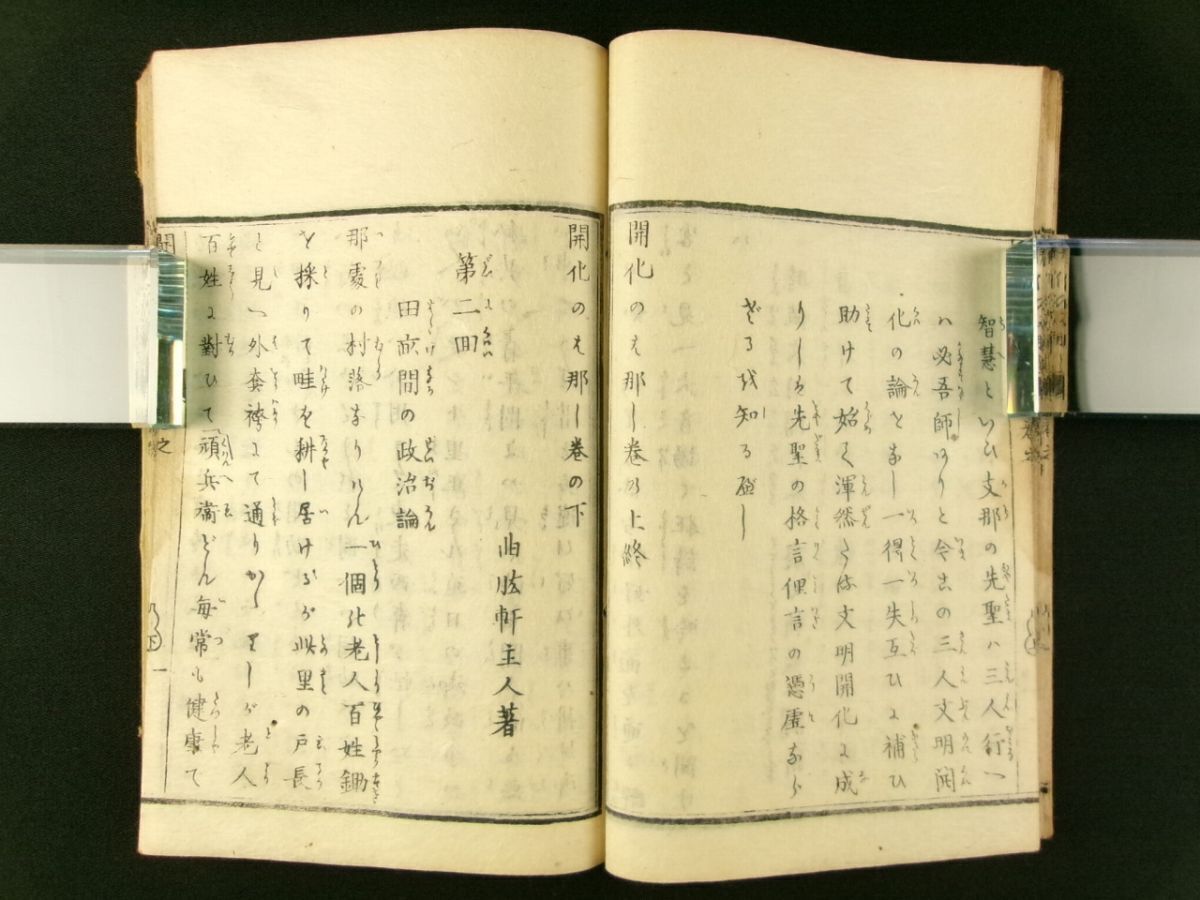 智慧といひ支那の先聖ハ三人行へ
ハ必吾師ありと今此の三人文明開
化の論となし一得一失互ひに補ひ
助けて始て渾然たる文明開化に成
りしも先聖の格言俚言の憑虚なら
ざるを知る可し
開化のはなし巻の上終
開化のはなし巻の下
曲肱軒主人著
第二回
田畝間の政治論
那處の村落なりけん一個の老人百姓鋤
を採りて畦を耕し居けるが此里の戸長
と見へ外套袴にて通りかゝりしが老人
百姓に對ひて頑兵衞どん毎常も健康で